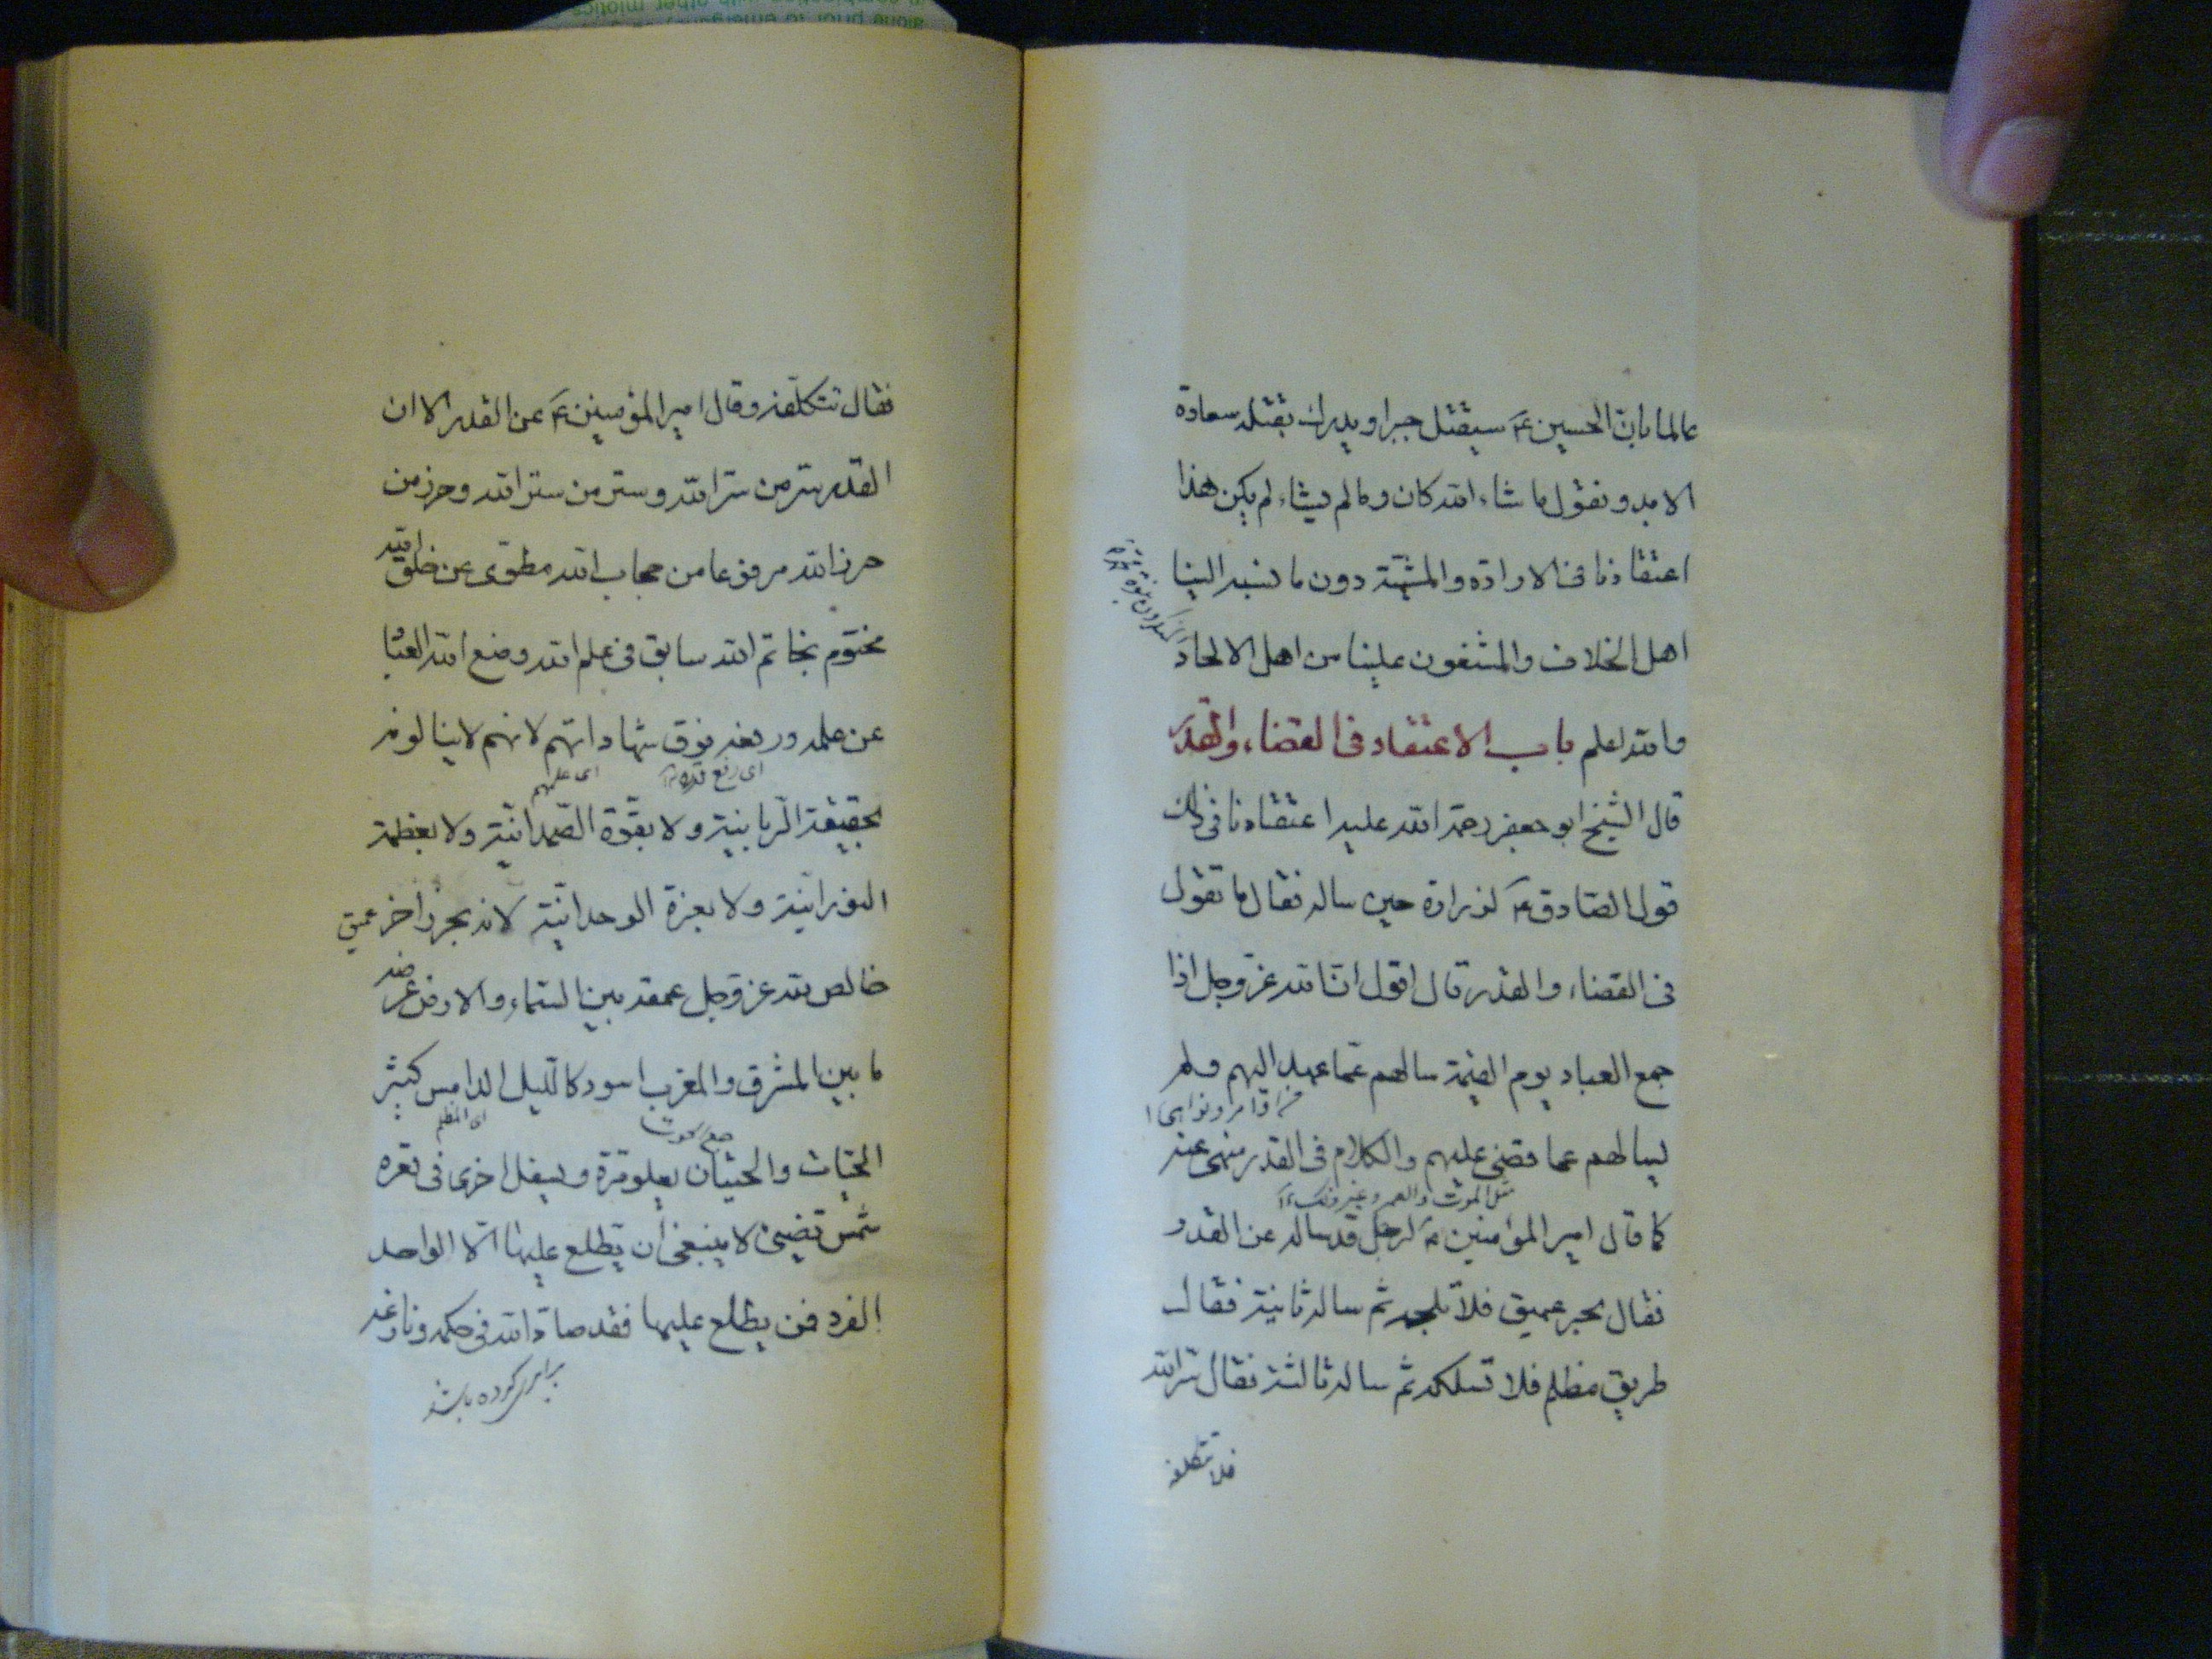 عالما بان الحسین ع سیقتل جبرا و یدرك بقتله سعادة
الابد و نقول ما شاء الله كان و ما لم یشاء لم یكن هذا
اعتقادنا فی الارادة و المشیّة دون ما ینسبه الینا
اهل الخلاف و المشنعون علینا من اهل الالحاد
و الله اعلم باب الاعتقاد فی القضاء و القدر
قال الشیخ ابو جعفر رحمة الله علیه اعتقادنا فی ذلك
قول الصّادق ع لزرارة حین ساله فقال ما تقول
فی القضاء و القدر قال اقول انّ الله عزّ و جل اذا
جمع العباد یوم القیٰمة سالهم عمّا عهد الیهم و لم
یسالهم عما قضی علیهم و الكلام فی القدر منهی عنه
مثل الموت و العمر و غیر ذلك
كما قال امیر المؤمنین ع لرجل قد ساله عن القدر
فقال بحر عمیق فلا تلجه ثم ساله ثانیة فقال
طریق مظلم فلا تسلكه ثم ساله ثالثة فقال سر الله
فلا تتكلفه
فقال تتكلّفه و قال امیر المؤمنین ع عن القدر الا ان
القدر سر من سر الله و ستر من ستر الله و حرز من
حرز الله مرفوعا من حجاب الله مطوّی عن خلق الله
مختوم بخاتم الله سابق فی علم الله وضع الله العباد
عن علمه و رفعه فوق شهاداتهم لانهم لا ینالونه
ای علیهم
بحقیقة الرّبانیة و لا بقوّة الصّمدانیّة و لا بعظمة
النورانیّة و لا بعزة الوحدانیّة لانه بحر زاخر عمیق
خالص لله عز و جل عمقه بین السّماء و الارض عرضه
ما بین المشرق و المغرب اسود كاللّیل الدامس كثیر
ای المظلم
جمع الحوت
الحیّات و الحیتان یعلو مرّة و یسفل اخری فی قعره
شمس تضیئ لا ینبغی ان یطلع علیها الّا الواحد
الفرد فمن یطلع علیها فقد ضادّ الله فی حكمه و نازعه
برابری كرده باشد